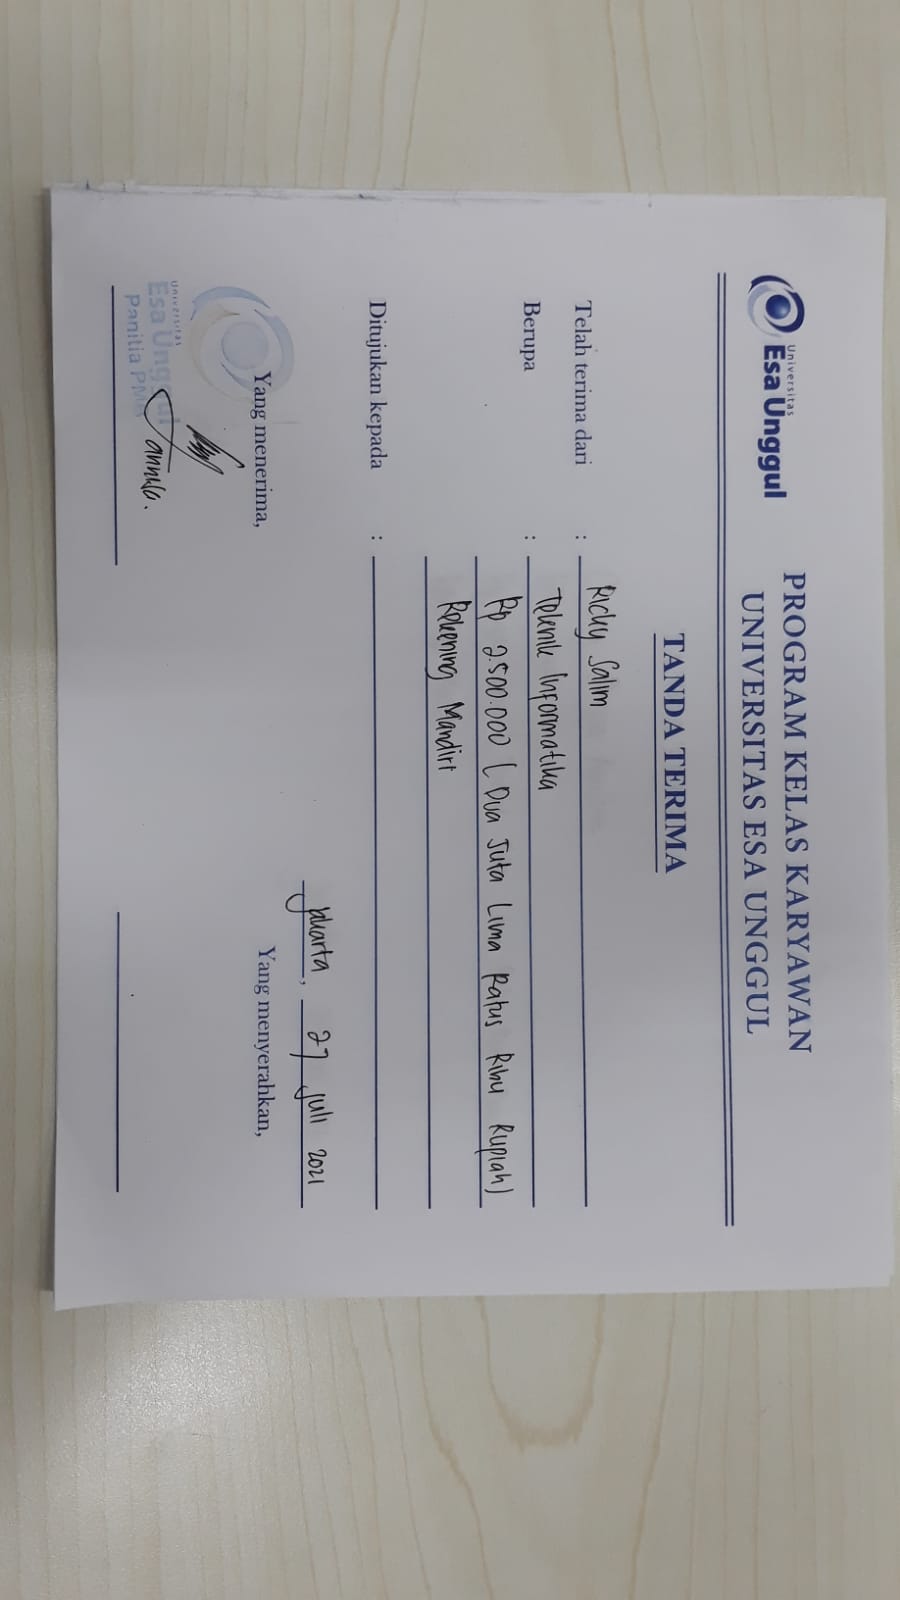 Universitas
Esa Unggul
PROGRAM KELAS KARYAWAN
UNIVERSITAS ESA UNGGUL
TANDA TERIMA
Telah terima dari : Ricky Salim
Berupa : Teknik Informatika
Rp 2.500.000 ( Dua Juta Lima Ratus Ribu Rupiah)
Rekening Mandiri
Ditujukan kepada :
Jakarta, 27 Juli 2021
Yang menerima,
Yang menyerahkan,
Universitas
Esa Unggul
Panitia PMB